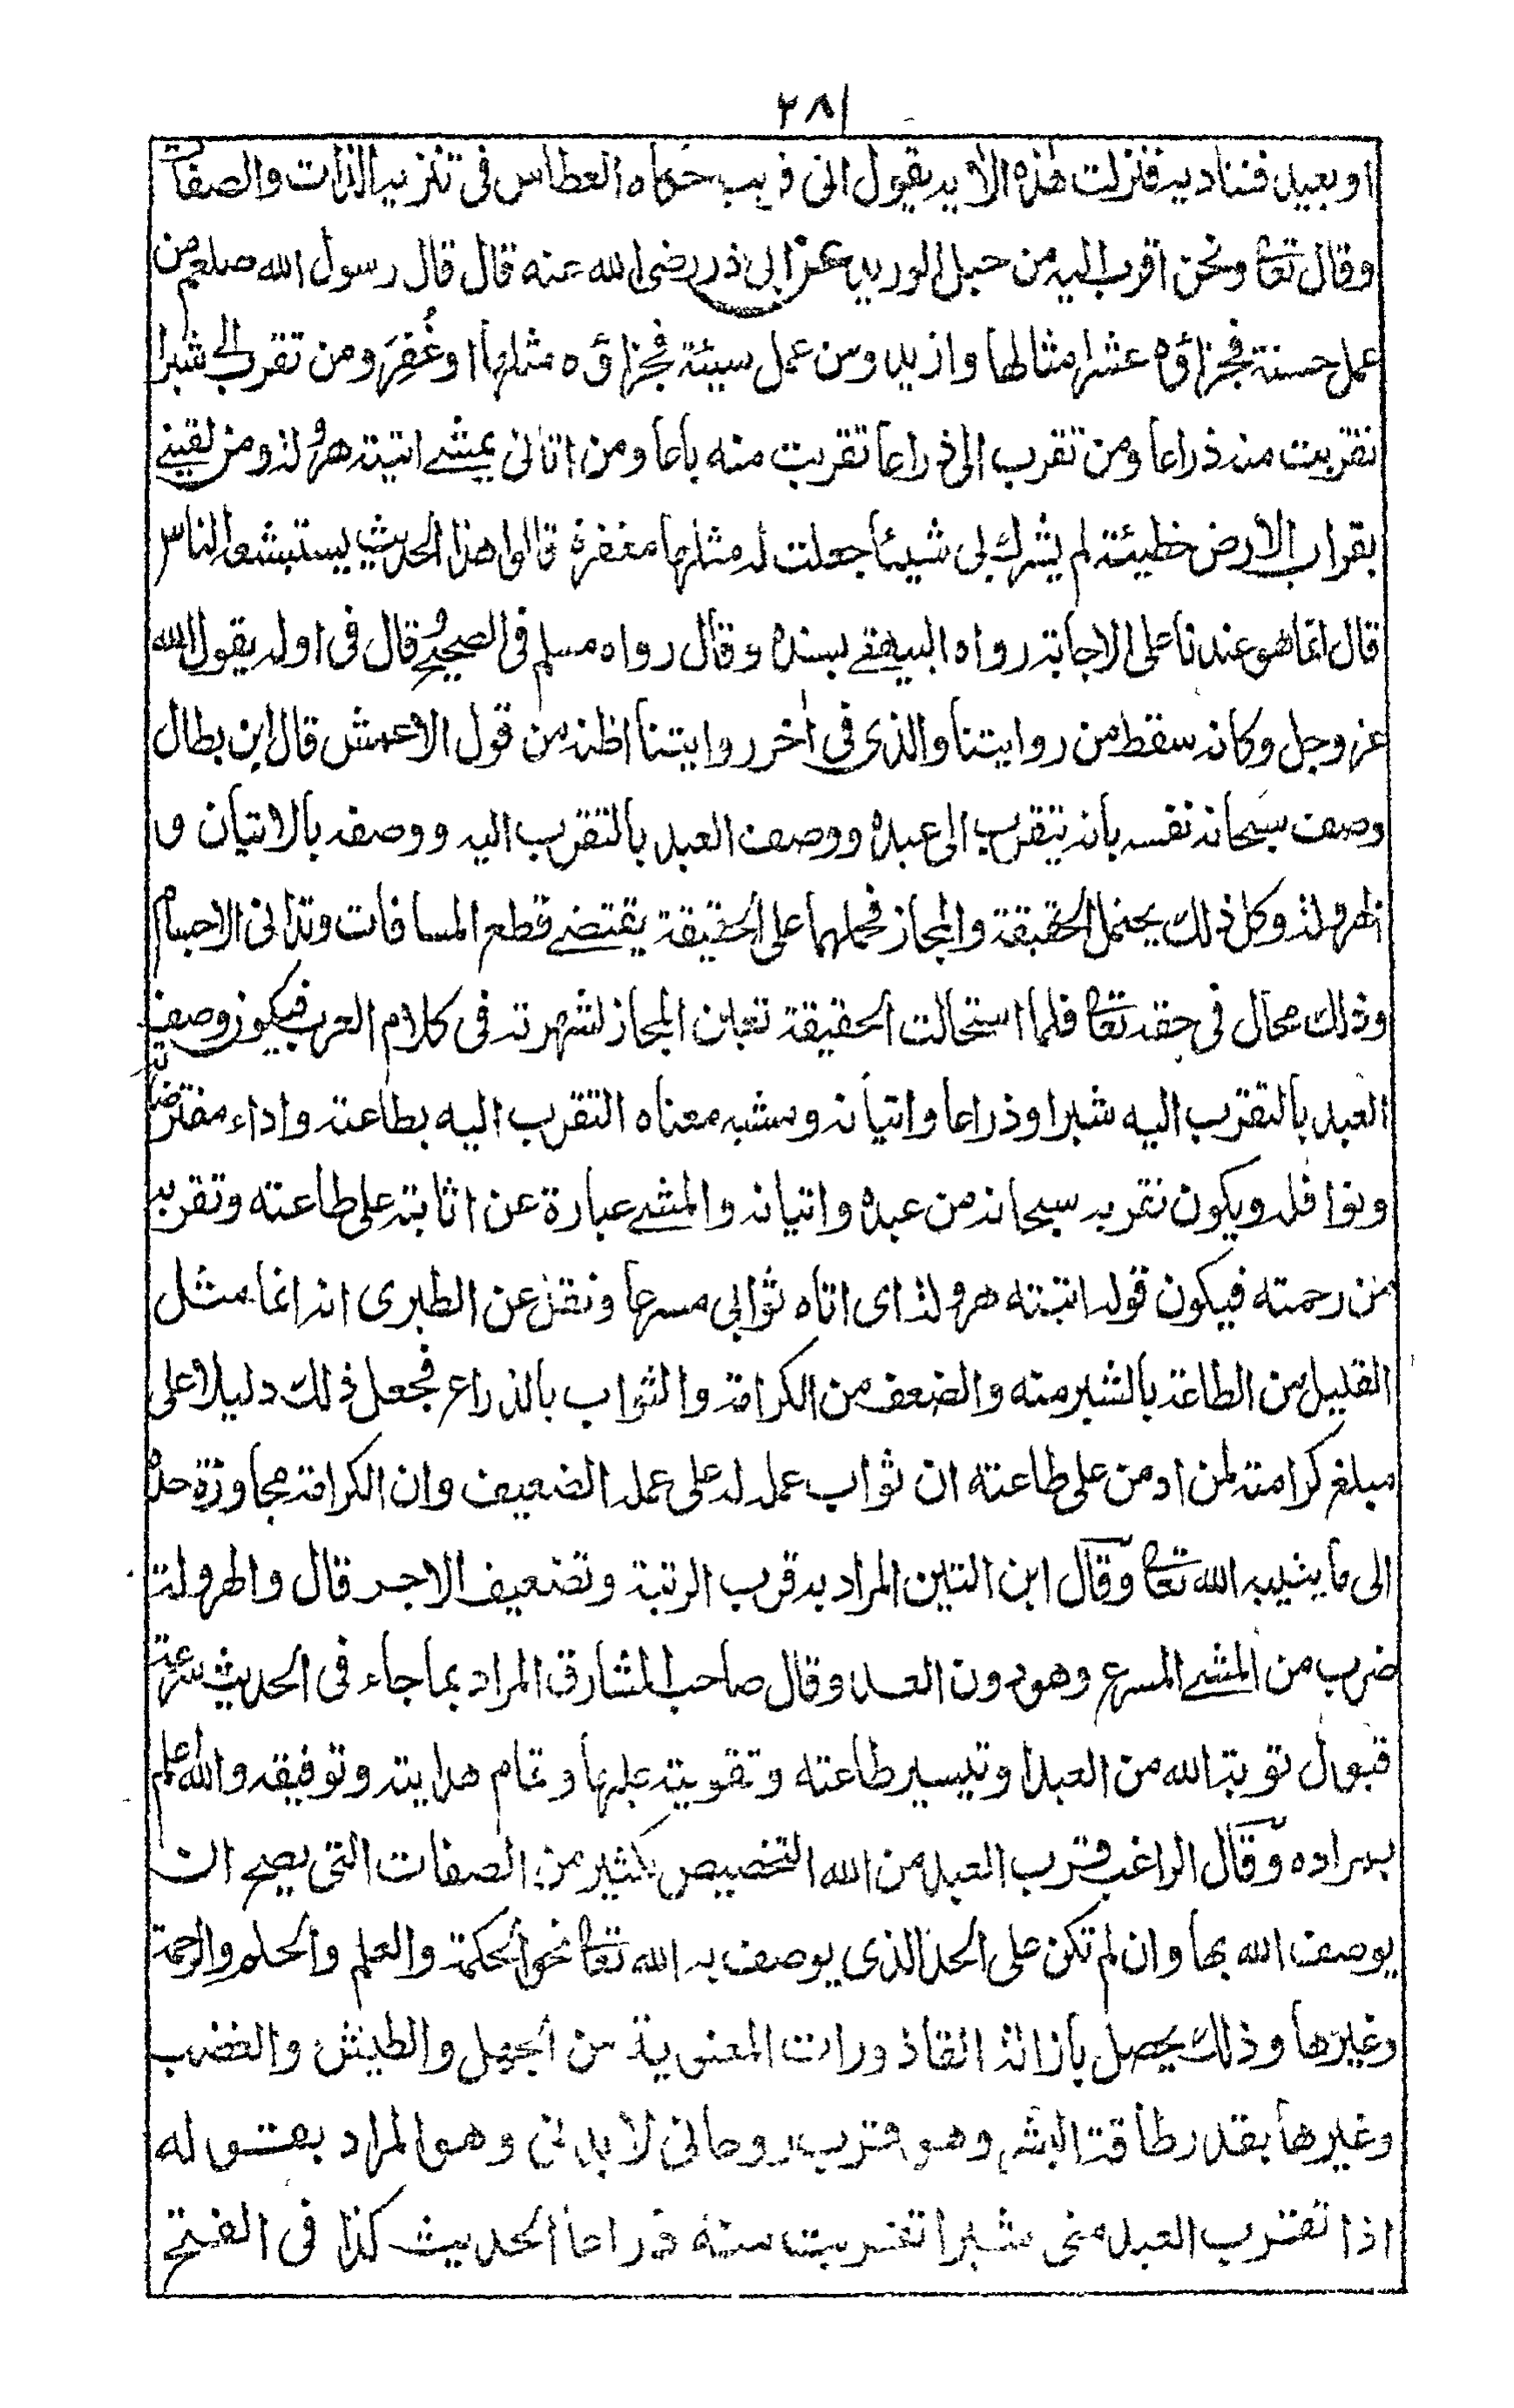 ٢٨١
او بعيد فنناديه فنزلت هذه الاية يقول انى قريب حكاه العطاس فى تنزيه الذات والصفات
وقال تعا ونحن اقرب اليه من حبل الوريد عن ابى ذر رضى الله عنه قال قال رسول الله صلعم من
عمل حسنة فجزاؤه عشر امثالها وازيد ومن عمل سيئة فجزاؤه مثلها او غُفِرَ ومن تقرب الىّ شبرا
تقربت منه ذراعا ومن تقرب الى ذراعا تقربت منه باعا ومن اتانى يمشى اتيته هرولة ومن لقينى
بقراب الارض خطيئة لم يشرك بى شيئا جعلت له مثلها مغفرة قالوا هذا الحديث يستبشعه الناس
قال انما هو عندنا على الاجابة رواه البيهقى بسنده وقال رواه مسلم فى الصحيح قال فى اوله يقول الله
عز وجل وكانه سقط من روايتنا والذى فى اخر روايتنا اظنه من قول الاعمش قال ابن بطال
وصف سبحانه نفسه بانه يتقرب الى عبده ووصف العبد بالتقرب اليه ووصفه بالاتيان و
الهرولة وكل ذلك يحتمل الحقيقة والمجاز فحملهما على الحقيقة يقتضى قطع المسافات وتدانى الاجسام
وذلك محال فى حقه تعا فلما استحالت الحقيقة تعين المجاز لشهرته فى كلام العرب فيكون وصف
العبد بالتقرب اليه شبرا وذراعا واتيانه ومشيه معناه التقرب اليه بطاعته واداء مفترضاته
ونوافله ويكون تقربه سبحانه من عبده واتيانه والمشى عبارة عن اثابته على طاعته وتقربه
من رحمته فيكون قوله اتيته هرولة اى اتاه ثوابى مسرعا ونقل عن الطبرى انه انما مثل
القليل من الطاعة بالشبر منه والضعف من الكرامة والثواب بالذراع فجعل ذلك دليلا على
مبلغ كرامته لمن ادمن على طاعته ان ثواب عمله له على عمله الضعيف وان الكرامة مجاوزة حده
الى ما يثيبه الله تعا وقال ابن التين المراد به قرب الرتبة وتضعيف الاجر قال والهرولة
ضرب من المشى المسرع وهو دون العدو وقال صاحب المشارق المراد بما جاء فى الحديث سرعة
قبول توبة الله من العبد او تيسير طاعته وتقويته عليها وتمام هدايته وتوفيقه والله اعلم
بمراده وقال الراغب قرب العبد من الله التخصيص بكثير من الصفات التى يصح ان
يوصف الله بها وان لم تكن على الحد الذى يوصف به الله تعا نحو الحكمة والعلم والحلم والرحمة
وغيرها وذلك يحصل بازالة القاذورات المعنوية من الجهل والطيش والغضب
وغيرها بقدر طاقة البشر وهو قرب روحانى لا بدنى وهو المراد بقوله
اذا تقرب العبد منى شبرا تقربت منه ذراعا الحديث كذا فى الفتح